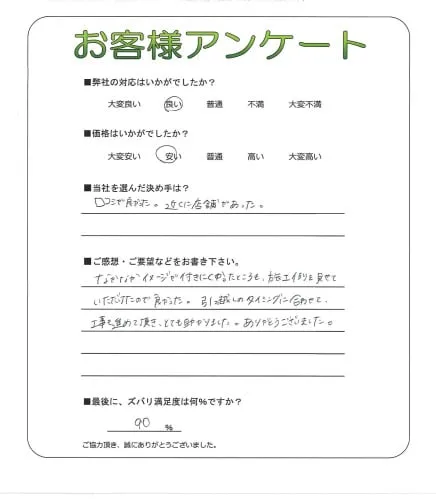 お客様アンケート
■弊社の対応はいかがでしたか?
大変良い 良い 普通 不満 大変不満
■価格はいかがでしたか?
大変安い 安い 普通 高い 大変高い
■当社を選んだ決め手は?
口コミが良かった。近くに店舗があった。
■ご感想・ご要望などをお書き下さい。
なかなかイメージが付きにくかったところも、施工例を見せて
いただけたので良かった。引っ越しのタイミングに合わせて、
工事を進めて頂き、とても助かりました。ありがとうございました。
■最後に、ズバリ満足度は何%ですか?
90 %
ご協力頂き、誠にありがとうございました。